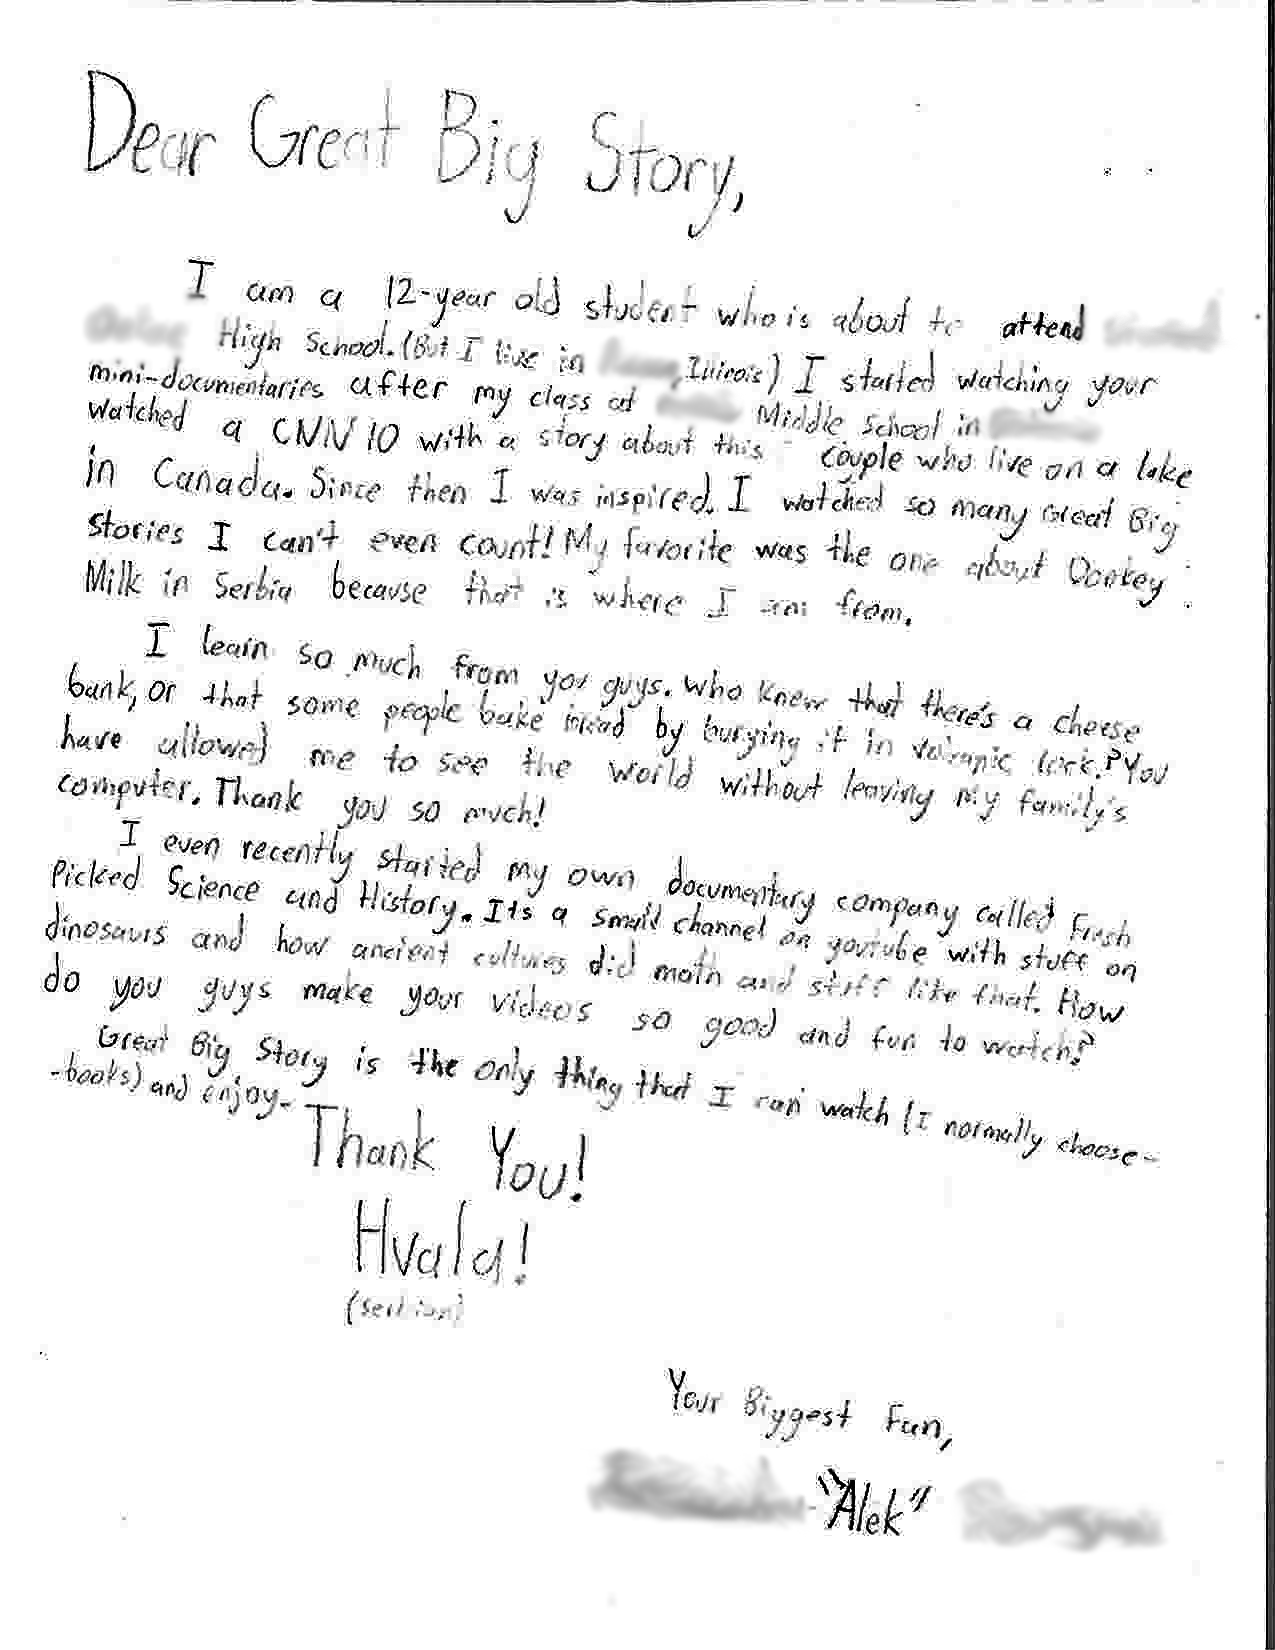 Dear Great Big Story,
I am a 12-year old student who is about to attend
High School. (But I live in , Illinois) I started watching your
mini-documentaries after my class at Middle School in
watched a CNN 10 with a story about this couple who live on a lake
in Canada. Since then I was inspired. I watched so many Great Big
stories I can't even count! My favorite was the one about Donkey
Milk in Serbia because that is where I am from.
I learn so much from you guys. Who knew that there's a cheese
bank, or that some people bake bread by burying it in volcanic rock? You
have allowed me to see the world without leaving my family's
computer. Thank you so much!
I even recently started my own documentary company called Fresh
Picked Science and History. Its a small channel on youtube with stuff on
dinosaurs and how ancient cultures did math and stuff like that. How
do you guys make your videos so good and fun to watch?
Great Big Story is the only thing that I can watch (I normally choose-
-books) and enjoy-
Thank You!
Hvala!
(Serbian)
Your Biggest Fan,
"Alek"